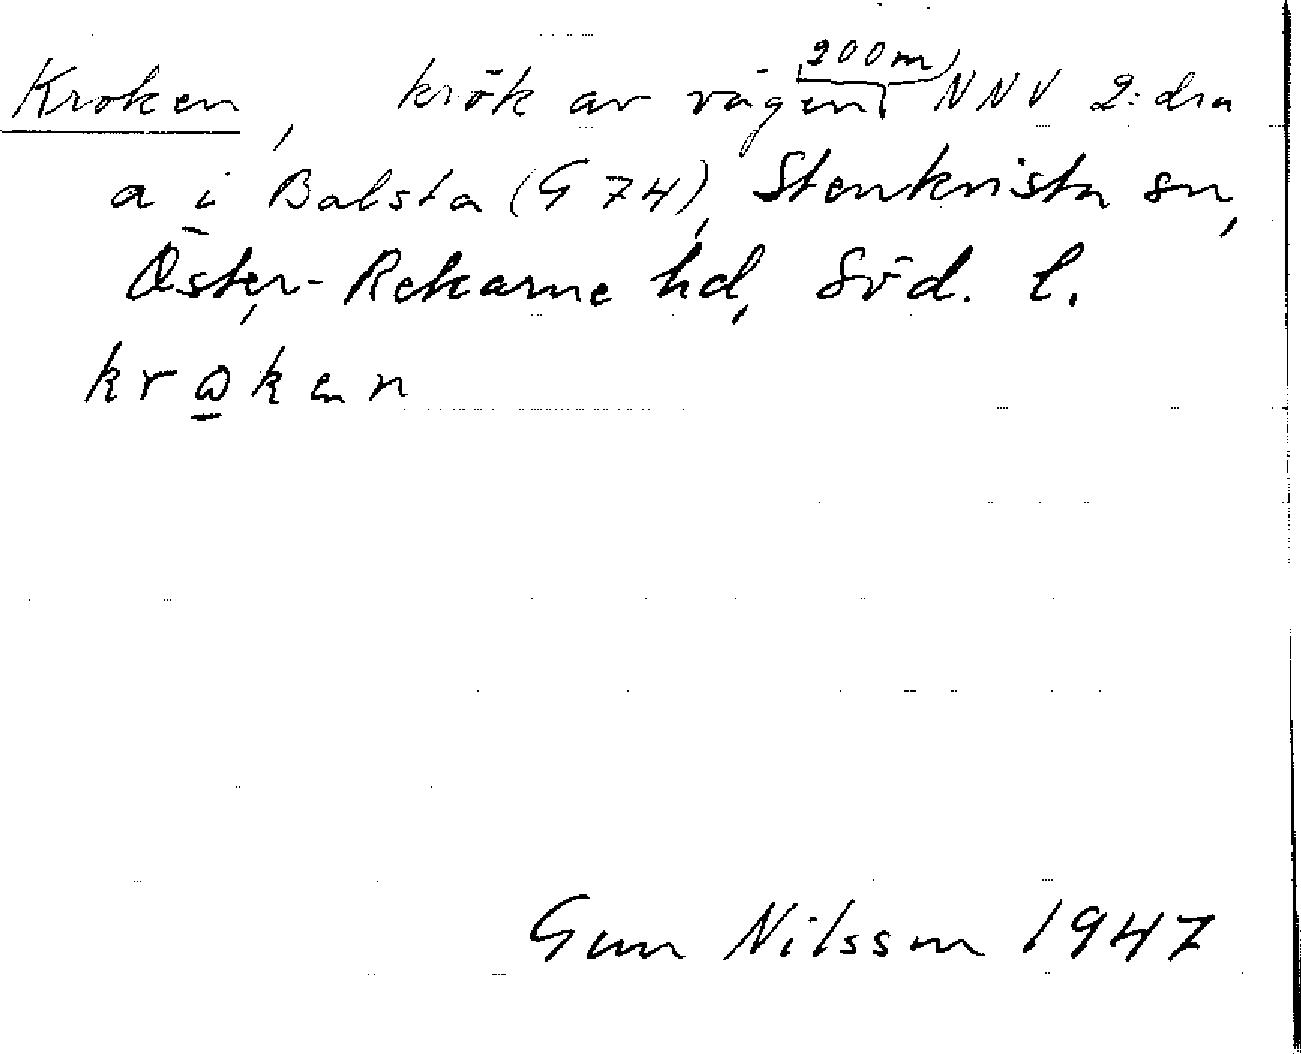 Kroken, krök av vägen 200 m NNV 2:dra
a i Balsta (G 74), Stenkvista sn,
Öster-Rekarne hd, Söd. l.
krωken
Gun Nilsson 1947